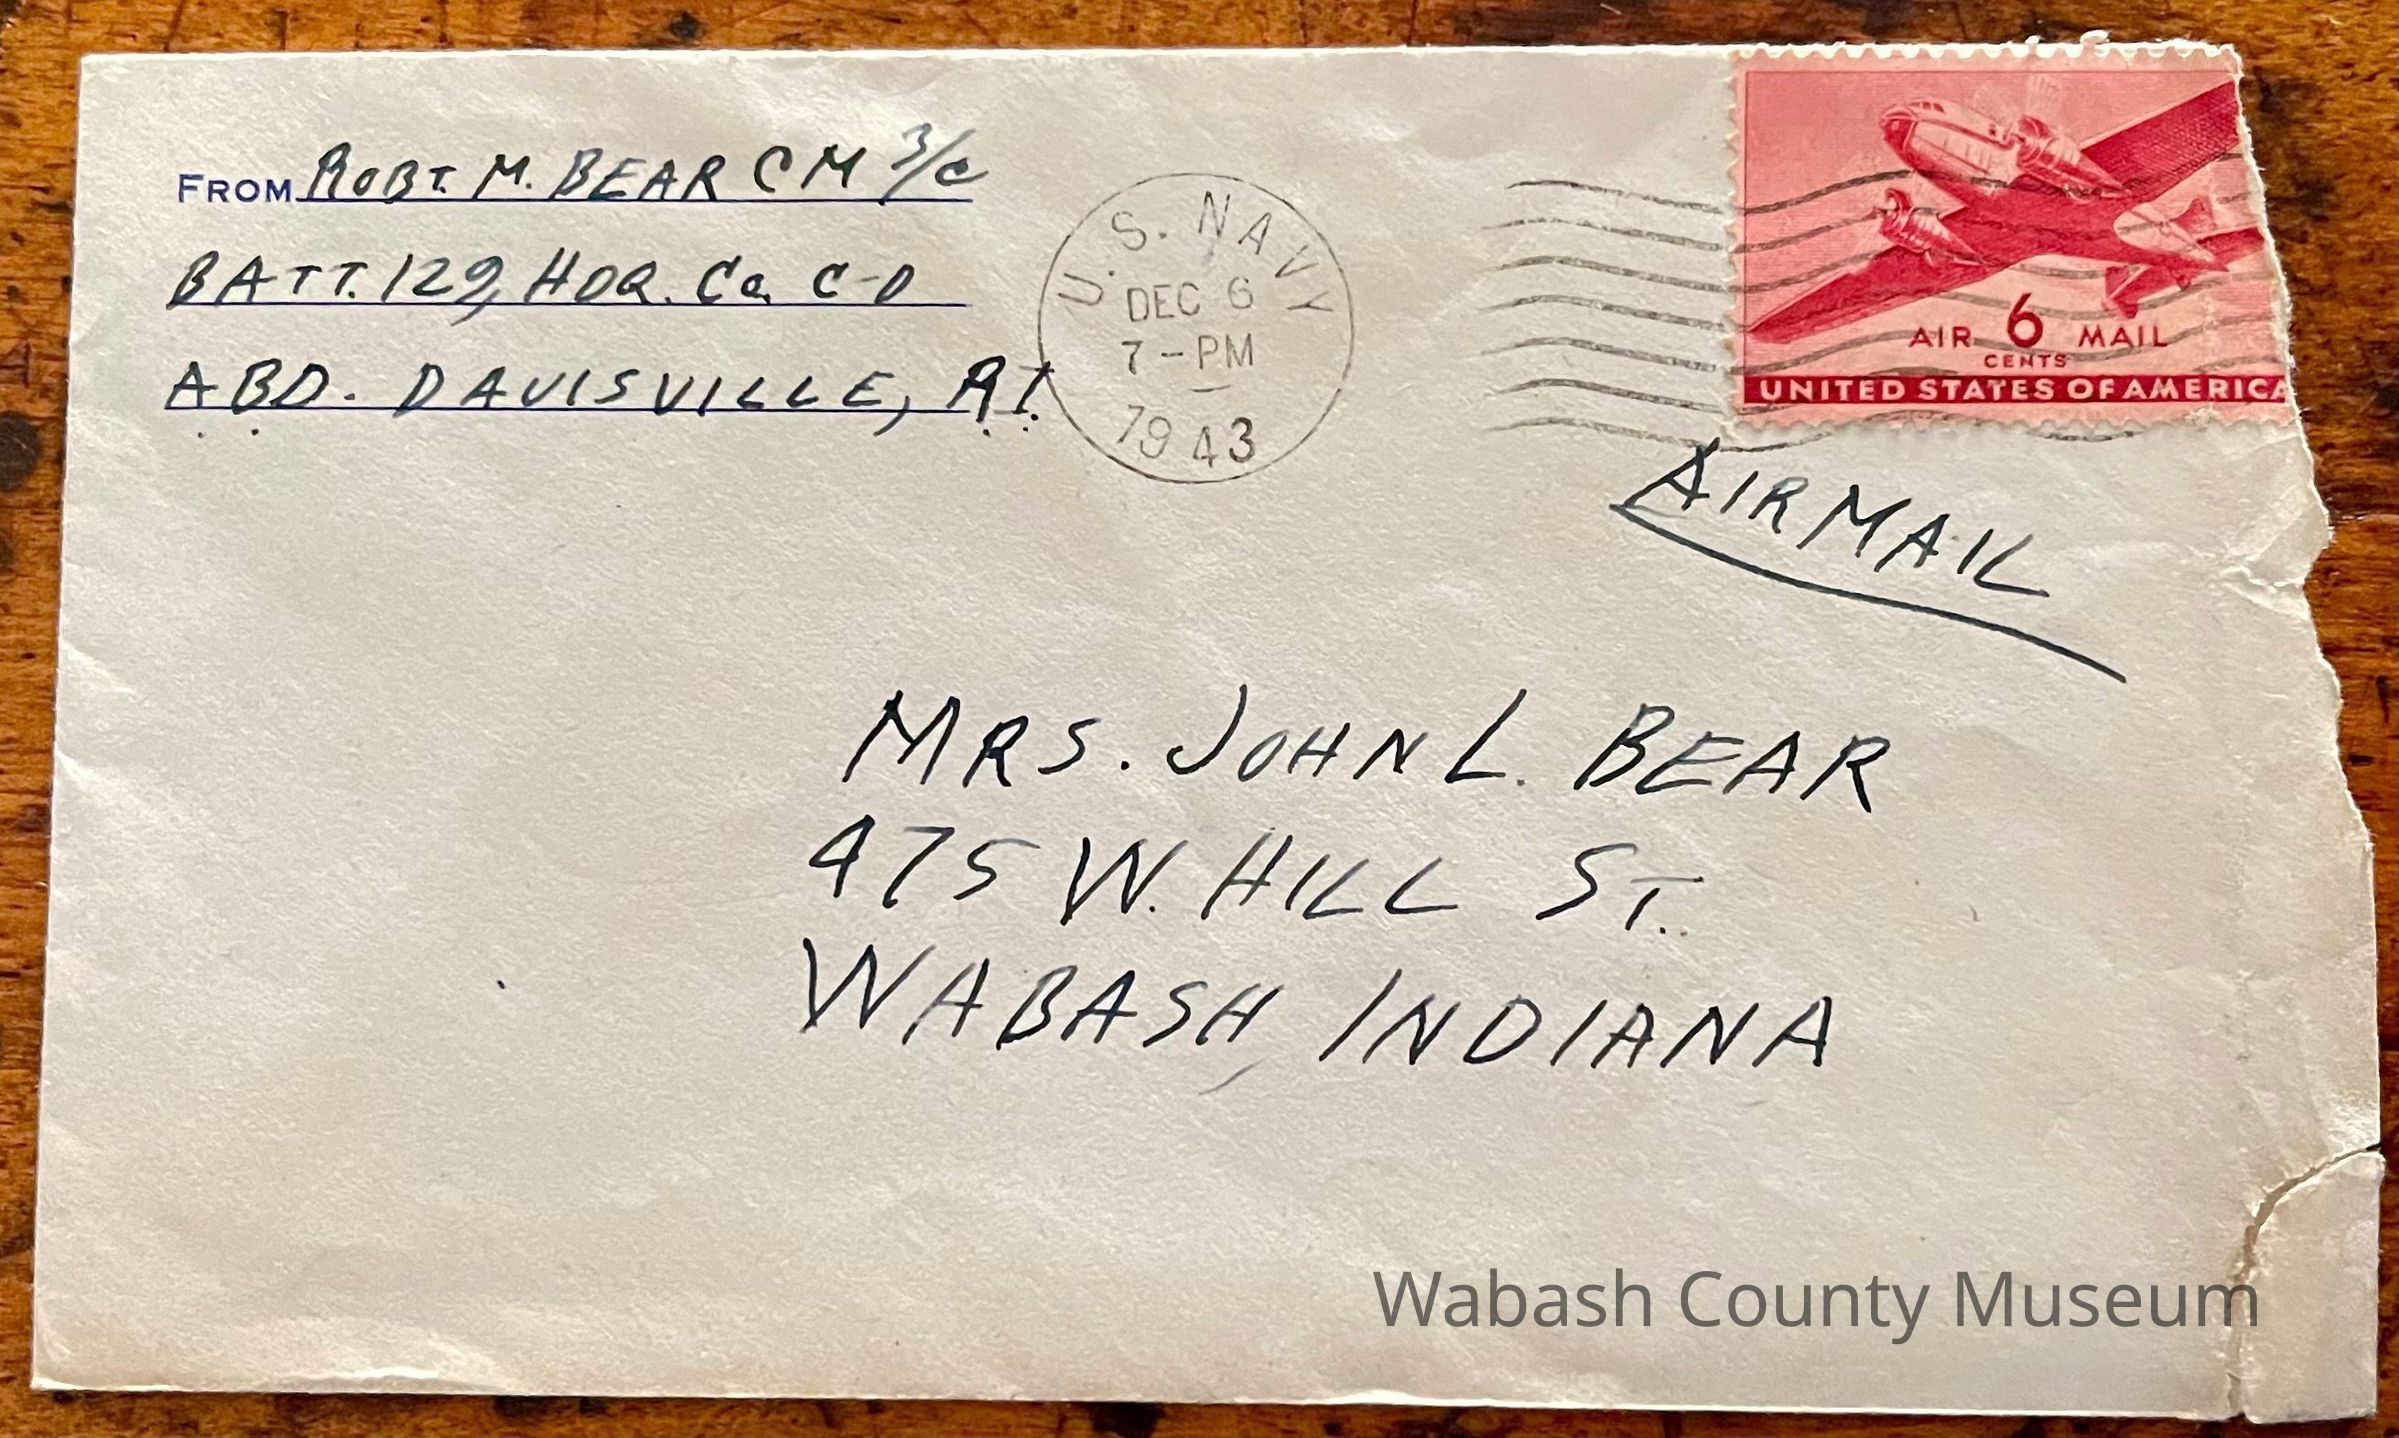 FROM ROBT. M. BEAR CM 3/C
BATT. 129, HDQ. Co. C-D
ABD. DAVISVILLE, R.I.
U.S. NAVY
DEC 6
7-PM
1943
AIR 6 MAIL
CENTS
UNITED STATES OF AMERICA
AIRMAIL
MRS. JOHN L. BEAR
475 W. HILL ST.
WABASH, INDIANA
Wabash County Museum